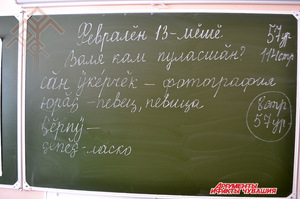 Февралӗн 13-мӗшӗ
57 ур.
Валя кам пуласшӑн?
114 стр
сӑн ӳкерчӗк – фотография
юрӑҫ – певец, певица
8 стр
57 ур.
вӗрпӳ –
ҫепӗҫ – ласко
АРГУМЕНТЫ
И ФАКТЫ
ЧУВАШИЯ